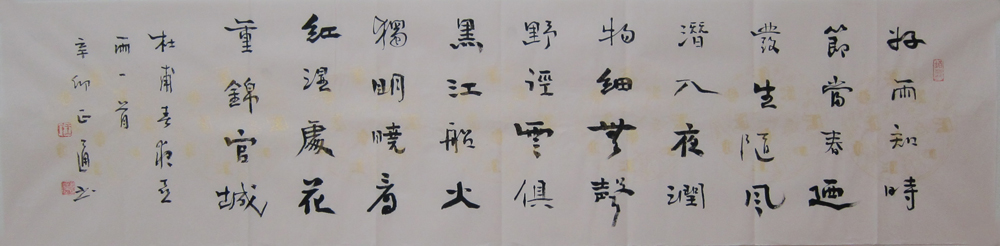 好雨知時
節當春迺
發生隨風
潛入夜潤
物細無聲
野徑雲俱
黑江船火
獨明曉看
紅濕處花
重錦官城
杜甫春夜喜
雨一首
辛卯正通书